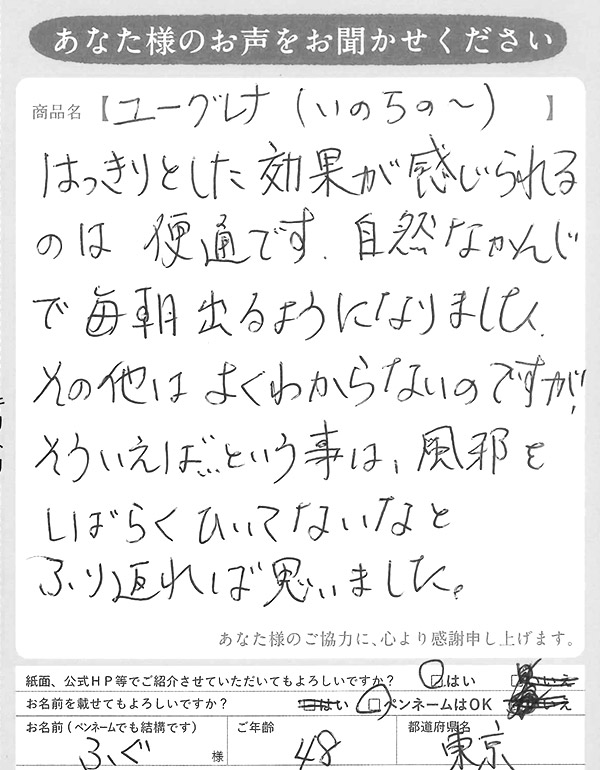 あなた様のお声をお聞かせください
商品名【ユーグレナ(いのちの〜)】
はっきりとした効果が感じられる
のは 便通です. 自然なかんじ
で 毎朝 出るようになりました.
その他は よくわからないのですが,
そういえば…という事は、風邪を
しばらく ひいてないなと
ふり返れば思いました。
あなた様のご協力に、心より感謝申し上げます。
紙面、公式HP等でご紹介させていただいてもよろしいですか? □はい □いいえ
お名前を載せてもよろしいですか? □はい □ペンネームはOK □いいえ
お名前(ペンネームでも結構です) ご年齢 都道府県名
ふぐ 様 48 東京